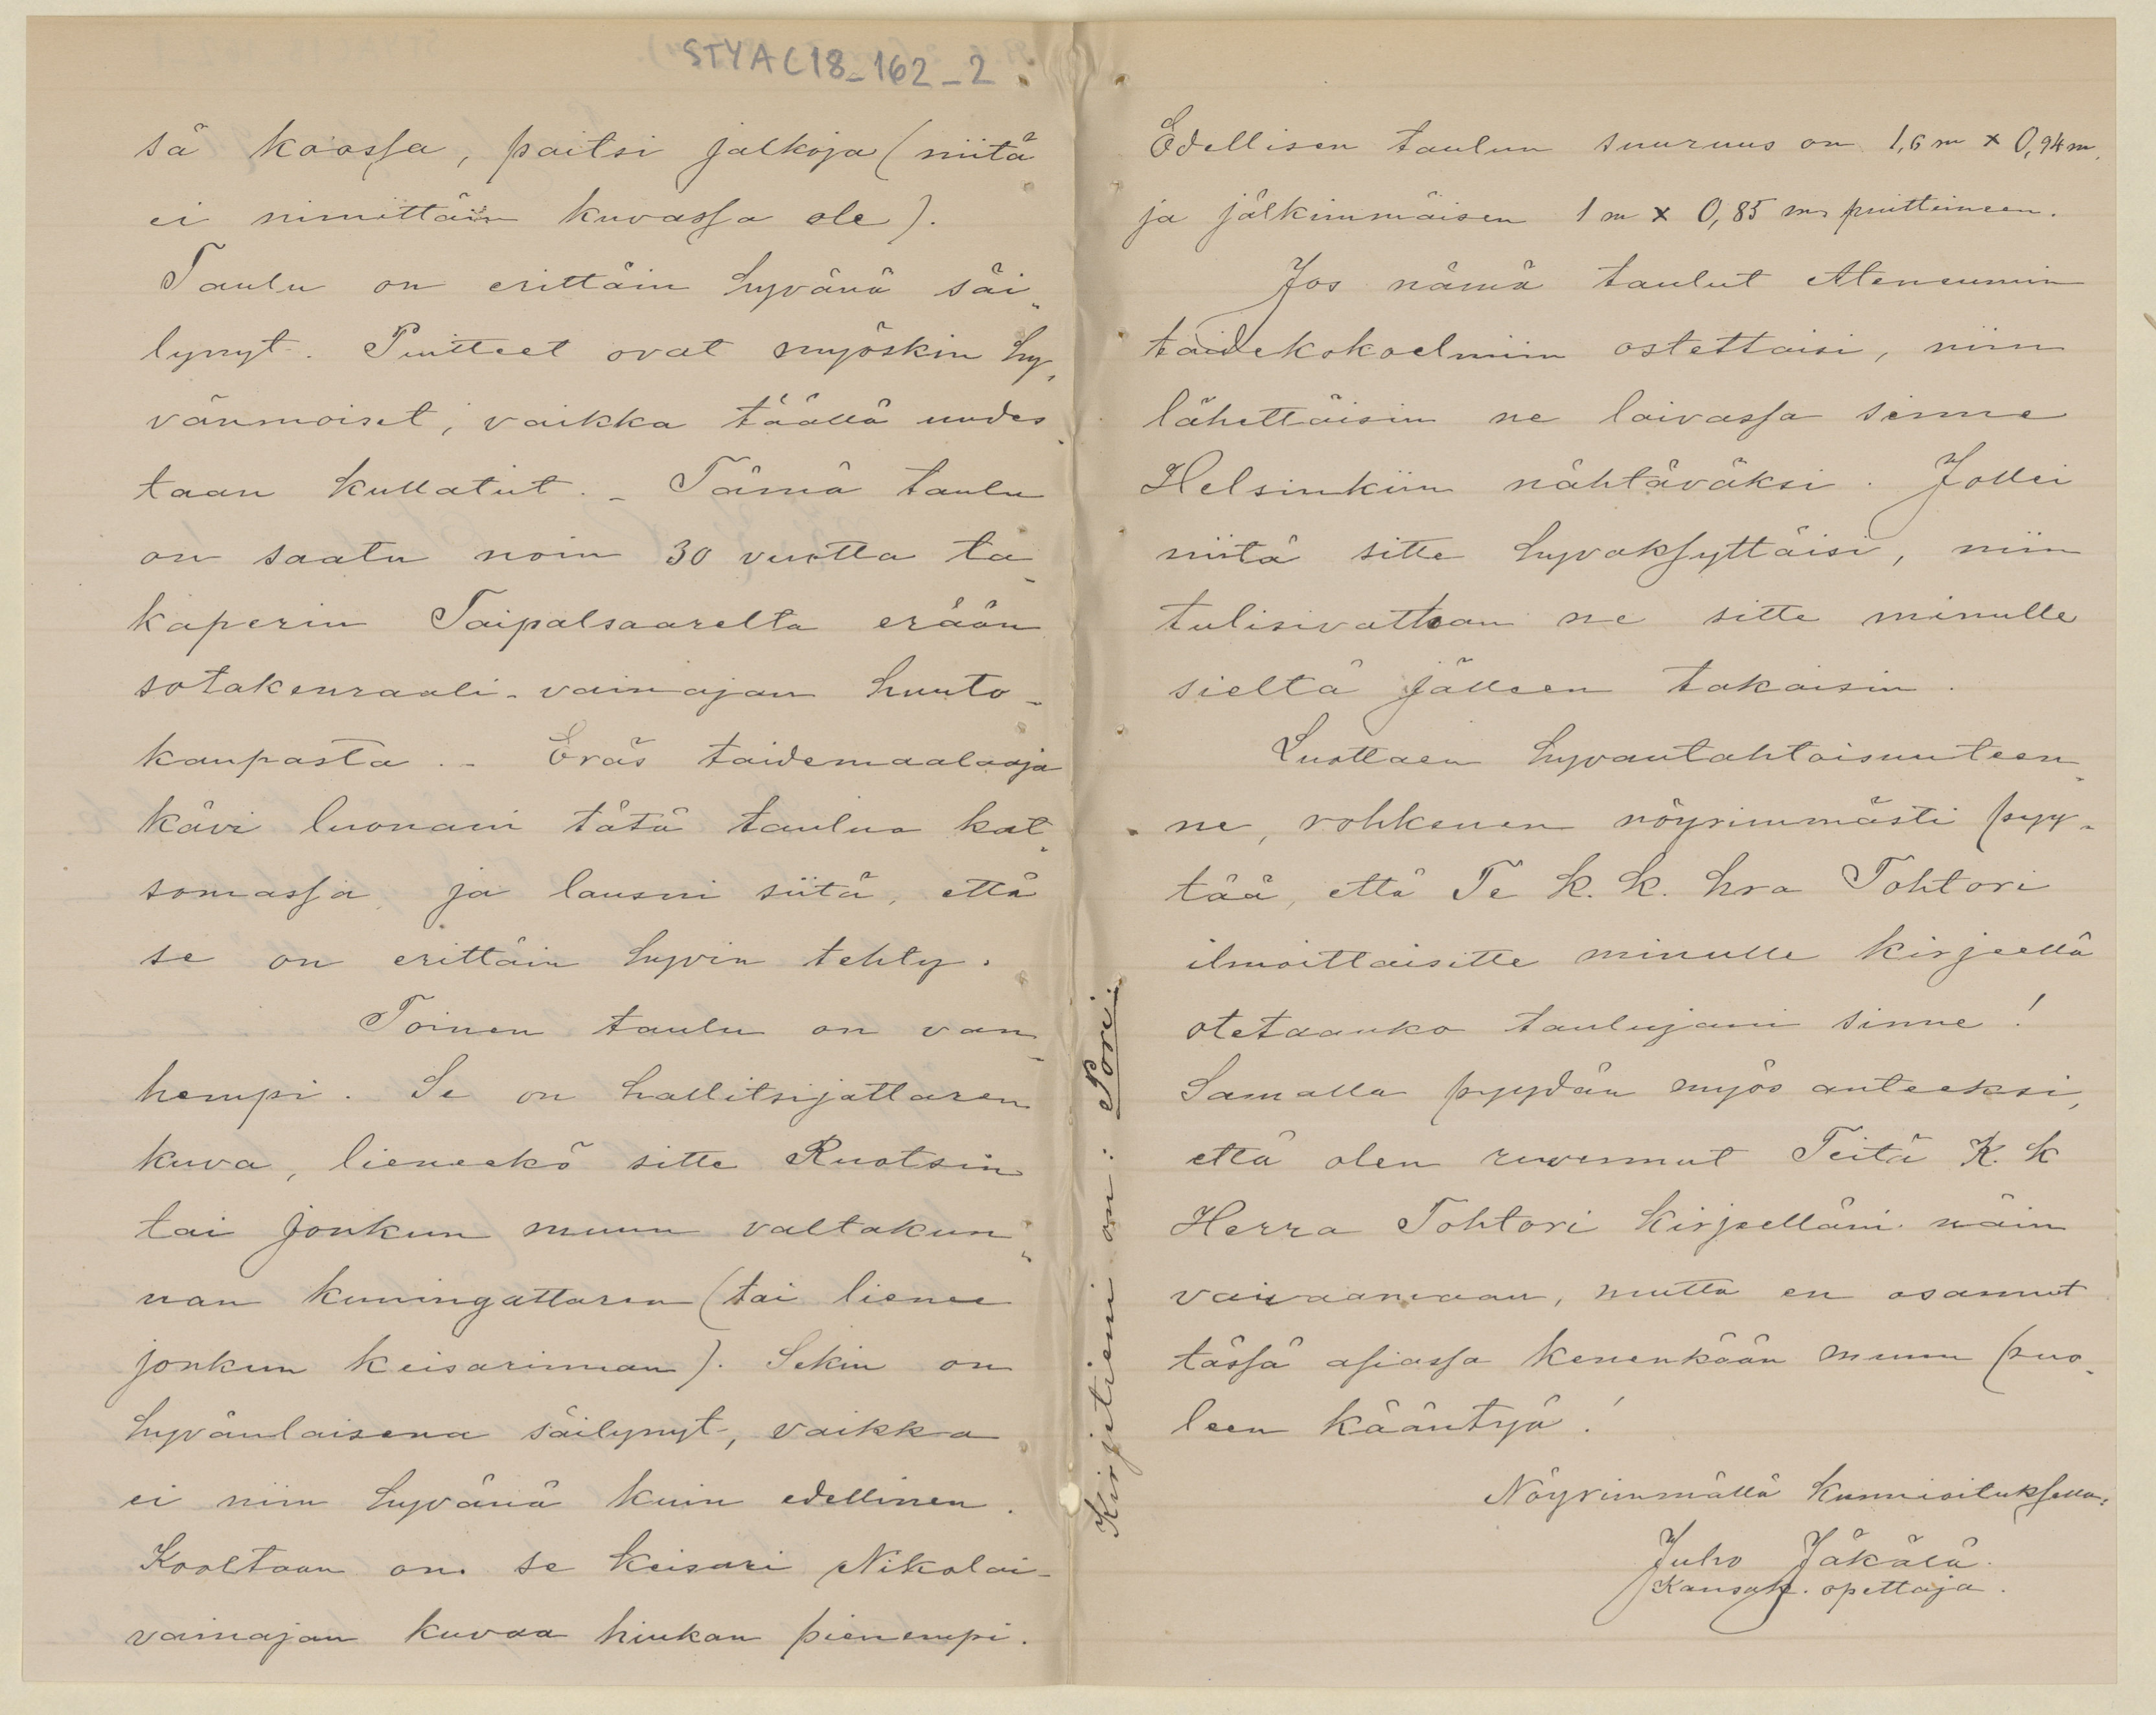 STYA C18_162_2
sä koossa, paitsi jalkoja (niitä
ei nimittäin kuvassa ole).
Taulu on erittäin hyvänä säi-
lynyt. Puitteet ovat myöskin hy-
vänmoiset, vaikka täällä uudes-
taan kullatut. - Tämä taulu
on saatu noin 30 vuotta ta-
kaperin Taipalsaarelta erään
sotakenraali-vainajan huuto-
kaupasta. - Eräs taidemaalaaja
kävi luonani tätä taulua kat-
somassa ja lausui siitä, että
se on erittäin hyvin tehty.
Toinen taulu on van-
hempi. Se on hallitsijattaren
kuva, lieneekö sitte Ruotsin
tai jonkun muun valtakun-
nan kuningattaren (tai lienee
jonkun keisarinnan). Sekin on
hyvänlaisena säilynyt, vaikka
ei niin hyvänä kuin edellinen.
Kooltaan on se keisari Nikolai-
vainajan kuvaa hiukan pienempi.
Edellisen taulun suuruus on 1,6 m x 0,94 m,
ja jälkimmäisen 1 m x 0,85 m puitteineen.
Jos nämä taulut Ateneumin
taidekokoelmiin ostettaisi, niin
lähettäisin ne laivassa sinne
Helsinkiin nähtäväksi. Jollei
niitä sitte hyvaksyttäisi, niin
tulisivathan ne sitte minulle
sieltä jälleen takaisin.
Luottaen hyvantahtoisuuteen-
ne, rohkenen nöyrimmästi pyy-
tää, että Te k. k. hra Tohtori
ilmoittaisitte minulle kirjeellä
otetaanko taulujani sinne!
Samalla pyydän myös anteeksi,
että olen ruvennut Teitä K. k
Herra Tohtori kirjeelläni näin
vaivaamaan, mutta en osannut
tässä asiassa kenenkään muun puo-
leen kääntyä!
Nöyrimmällä kunnioituksella:
Juho Jäkälä.
Kansak. opettaja.
Kirjetieni on: Pori.